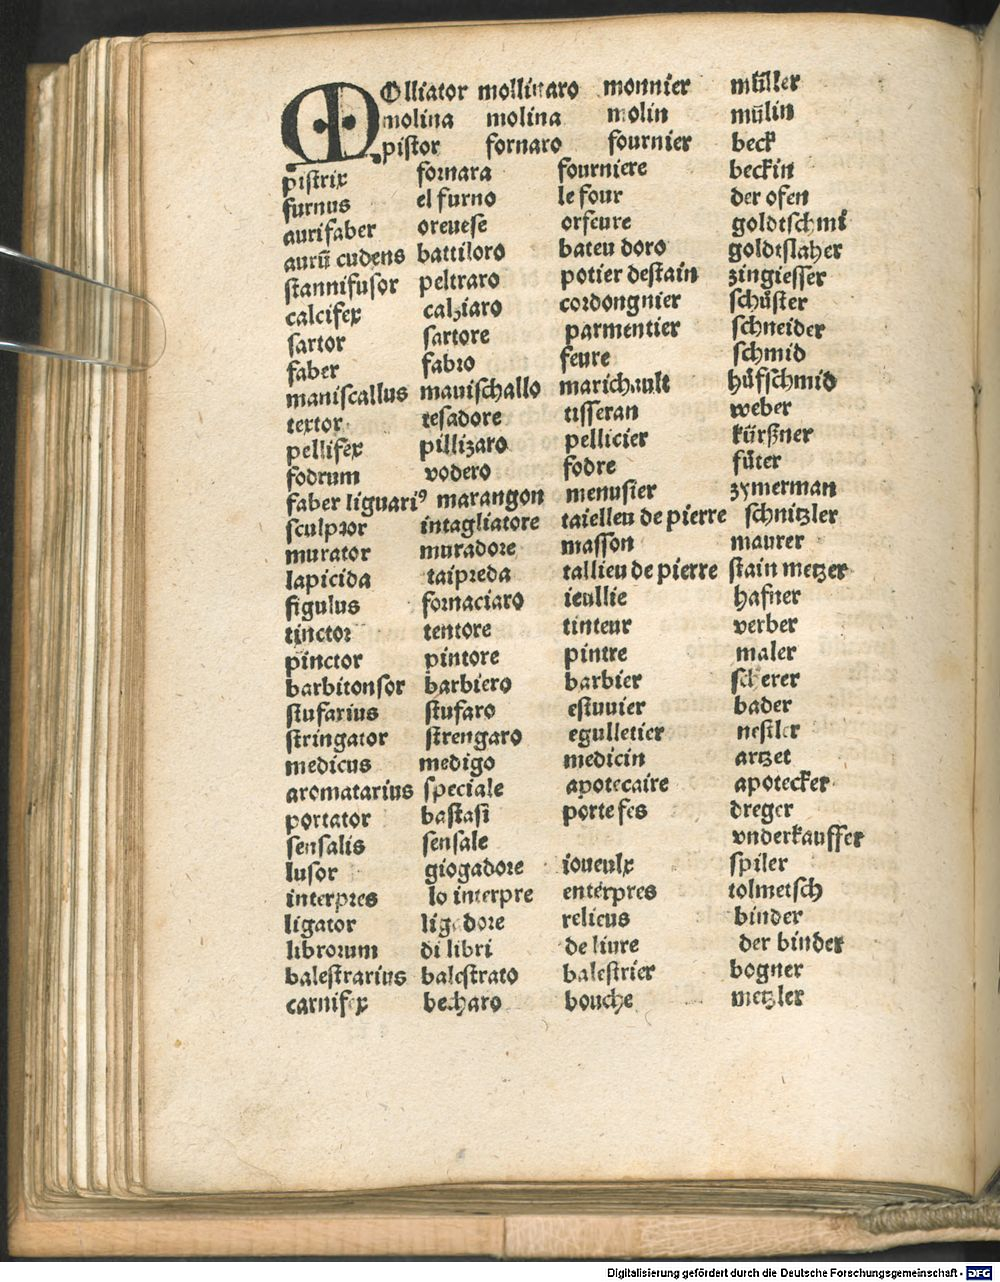 MOlliator mollinaro monnier müller
molina molina molin mülin
pistor fornaro fournier beck
pistrix fornara fourniere beckin
furnus el furno le four der ofen
aurifaber oreuese orfeure goldtschmi
aurū cudens battiloro bateu doro goldtslaher
stannifusor peltraro potier destain zingiesser
calcifex calziaro cordongnier schůster
sartor sartore parmentier schneider
faber fabro feure schmid
maniscallus mauischallo marichault hůfschmid
textor tesadore tisseran weber
pellifex pillizaro pellicier kürßner
fodrum vodero fodre fůter
faber liguariꝰ marangon menusier zymerman
sculptor intagliatore taielleu de pierre schnitzler
murator muradore masson maurer
lapicida taipreda tallieu de pierre stain metzer
figulus fornaciaro ieullie hafner
tinctor tentore tinteur verber
pinctor pintore pintre maler
barbitonsor barbiero barbier scherer
stufarius stufaro estuuier bader
stringator strengaro egulletier nestler
medicus medigo medicin artzet
aromatarius speciale apotecaire apotecker
portator bastasi porte fes dreger
sensalis sensale vnderkauffer
lusor giogadore ioueulx spiler
interpres lo interpre enterpres tolmetsch
ligator ligadore relieus binder
librorum di libri de liure der binder
balestrarius balestrato balestrier bogner
carnifex becharo bouche metzler
Digitalisierung gefördert durch die Deutsche Forschungsgemeinschaft - DFG